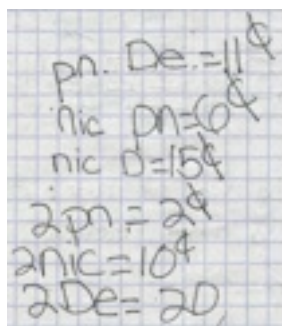 pn. De.=11¢
nic pn=6¢
nic D=15¢
2pn=2¢
2nic=10¢
2De=20